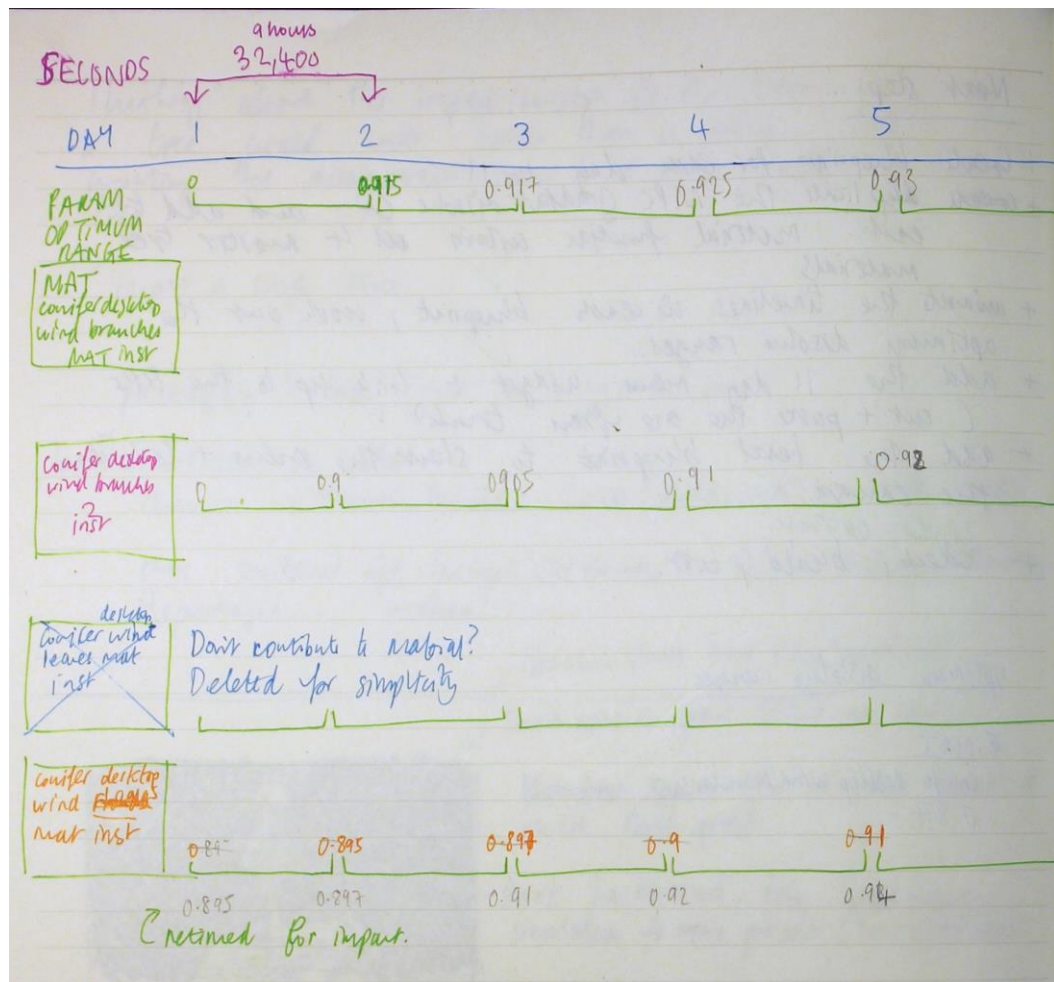 9 hours
SECONDS 32,400
DAY 1 2 3 4 5
PARAM OPTIMUM RANGE
0 0.917 0.925 0.93
MAT
conifer desktop
wind branches
MAT inst
conifer desktop
wind branches
2
inst
0 0.9 0.905 0.91 0.92
desktop
conifer wind
leaves mat
inst
Don't contribute to material?
Deleted for simplicity
conifer desktop
wind
mat inst
0.895 0.897 0.9 0.91
0.895 0.897 0.91 0.92 0.94
retimed for impact.